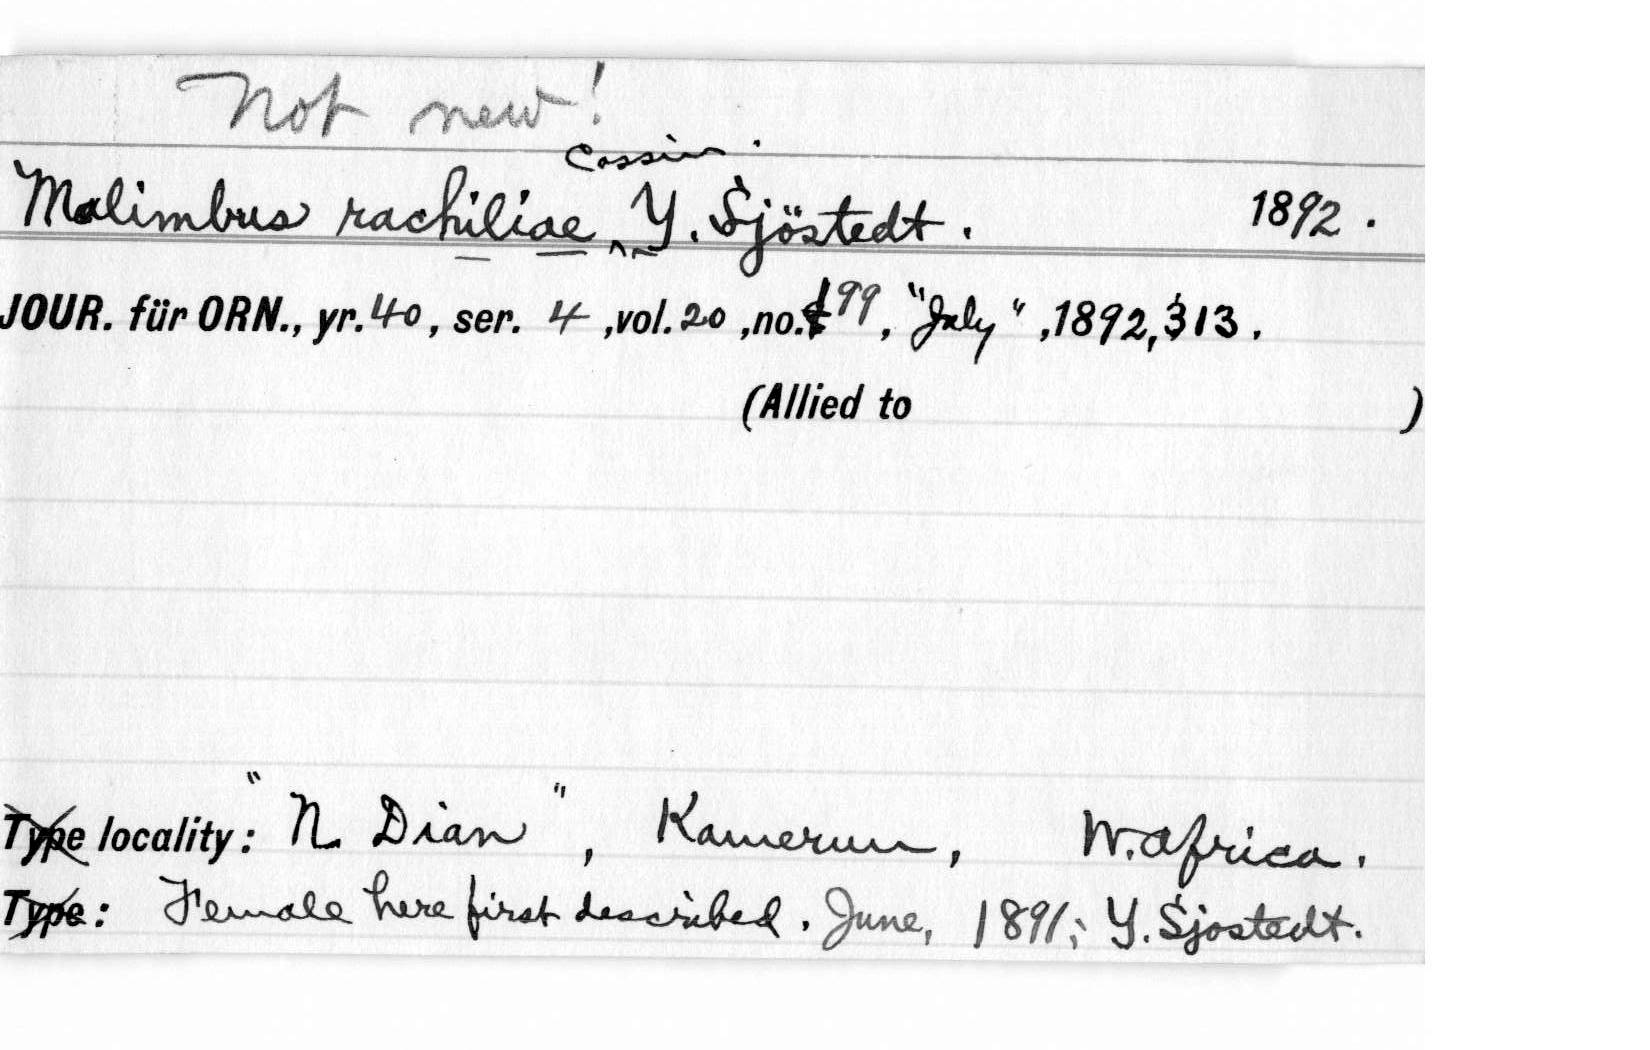 Not new!
Cassin.
Malimbus rachiliae Y. Sjöstedt. 1892.
JOUR. für ORN., yr. 40, ser. 4, vol. 20, no. 199, "July", 1892, 313.
(Allied to )
Type locality: "N. Dian", Kamerun, W. Africa.
Type: Female here first described. June, 1891; Y. Sjostedt.